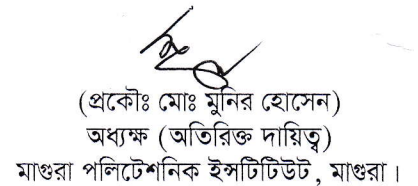 (প্রকৌঃ মোঃ মুনির হোসেন)
অধ্যক্ষ (অতিরিক্ত দায়িত্ব)
মাগুরা পলিটেশনিক ইন্সটিটিউট, মাগুরা।